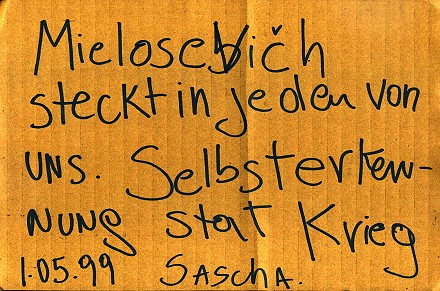 Mielosevich
steckt in jeden von
uns. Selbsterken-
nung stat Krieg
1.05.99 Sascha.